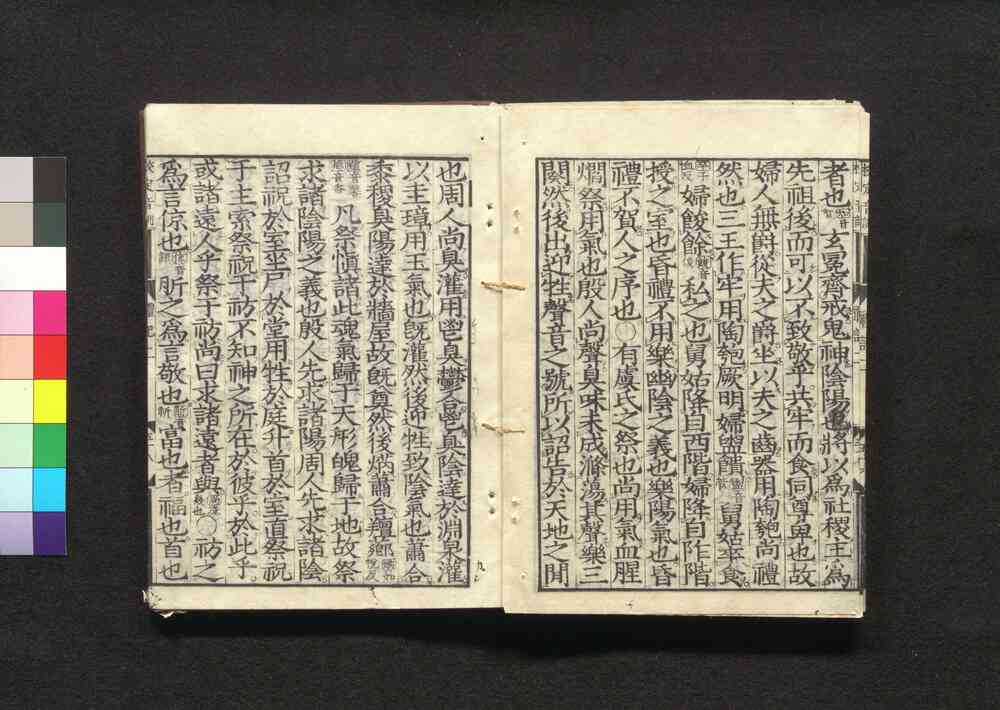 者也玄冕齊戒鬼神陰陽也將以爲社稷主爲
先祖後而可以不致敬乎共牢而食同尊卑也故
婦人無爵從夫之爵坐以夫之齒器用陶匏尚禮
然也三王作牢用陶匏厥明婦盥饋舅姑卒食
婦餕餘私之也舅姑降自西階婦降自阼階
授之室也昏禮不用樂幽陰之義也樂陽氣也昏
禮不賀人之序也○有虞氏之祭也尚用氣血腥
爓祭用氣也殷人尚聲臭味未成滌蕩其聲樂三
闋然後出迎牲聲音之號所以詔告於天地之閒
也周人尚臭灌用鬯臭鬱合鬯臭陰達於淵泉灌
以圭璋用玉氣也旣灌然後迎牲致陰氣也蕭合
黍稷臭陽達於牆屋故旣奠然後焫蕭合羶薌
凡祭愼諸此魂氣歸于天形魄歸于地故祭
求諸陰陽之義也殷人先求諸陽周人先求諸陰
詔祝於室坐尸於堂用牲於庭升首於室直祭祝
于主索祭祝于祊不知神之所在於彼乎於此乎
或諸遠人乎祭于祊尚曰求諸遠者與○祊之
爲言倞也肵之爲言敬也富也者福也首也